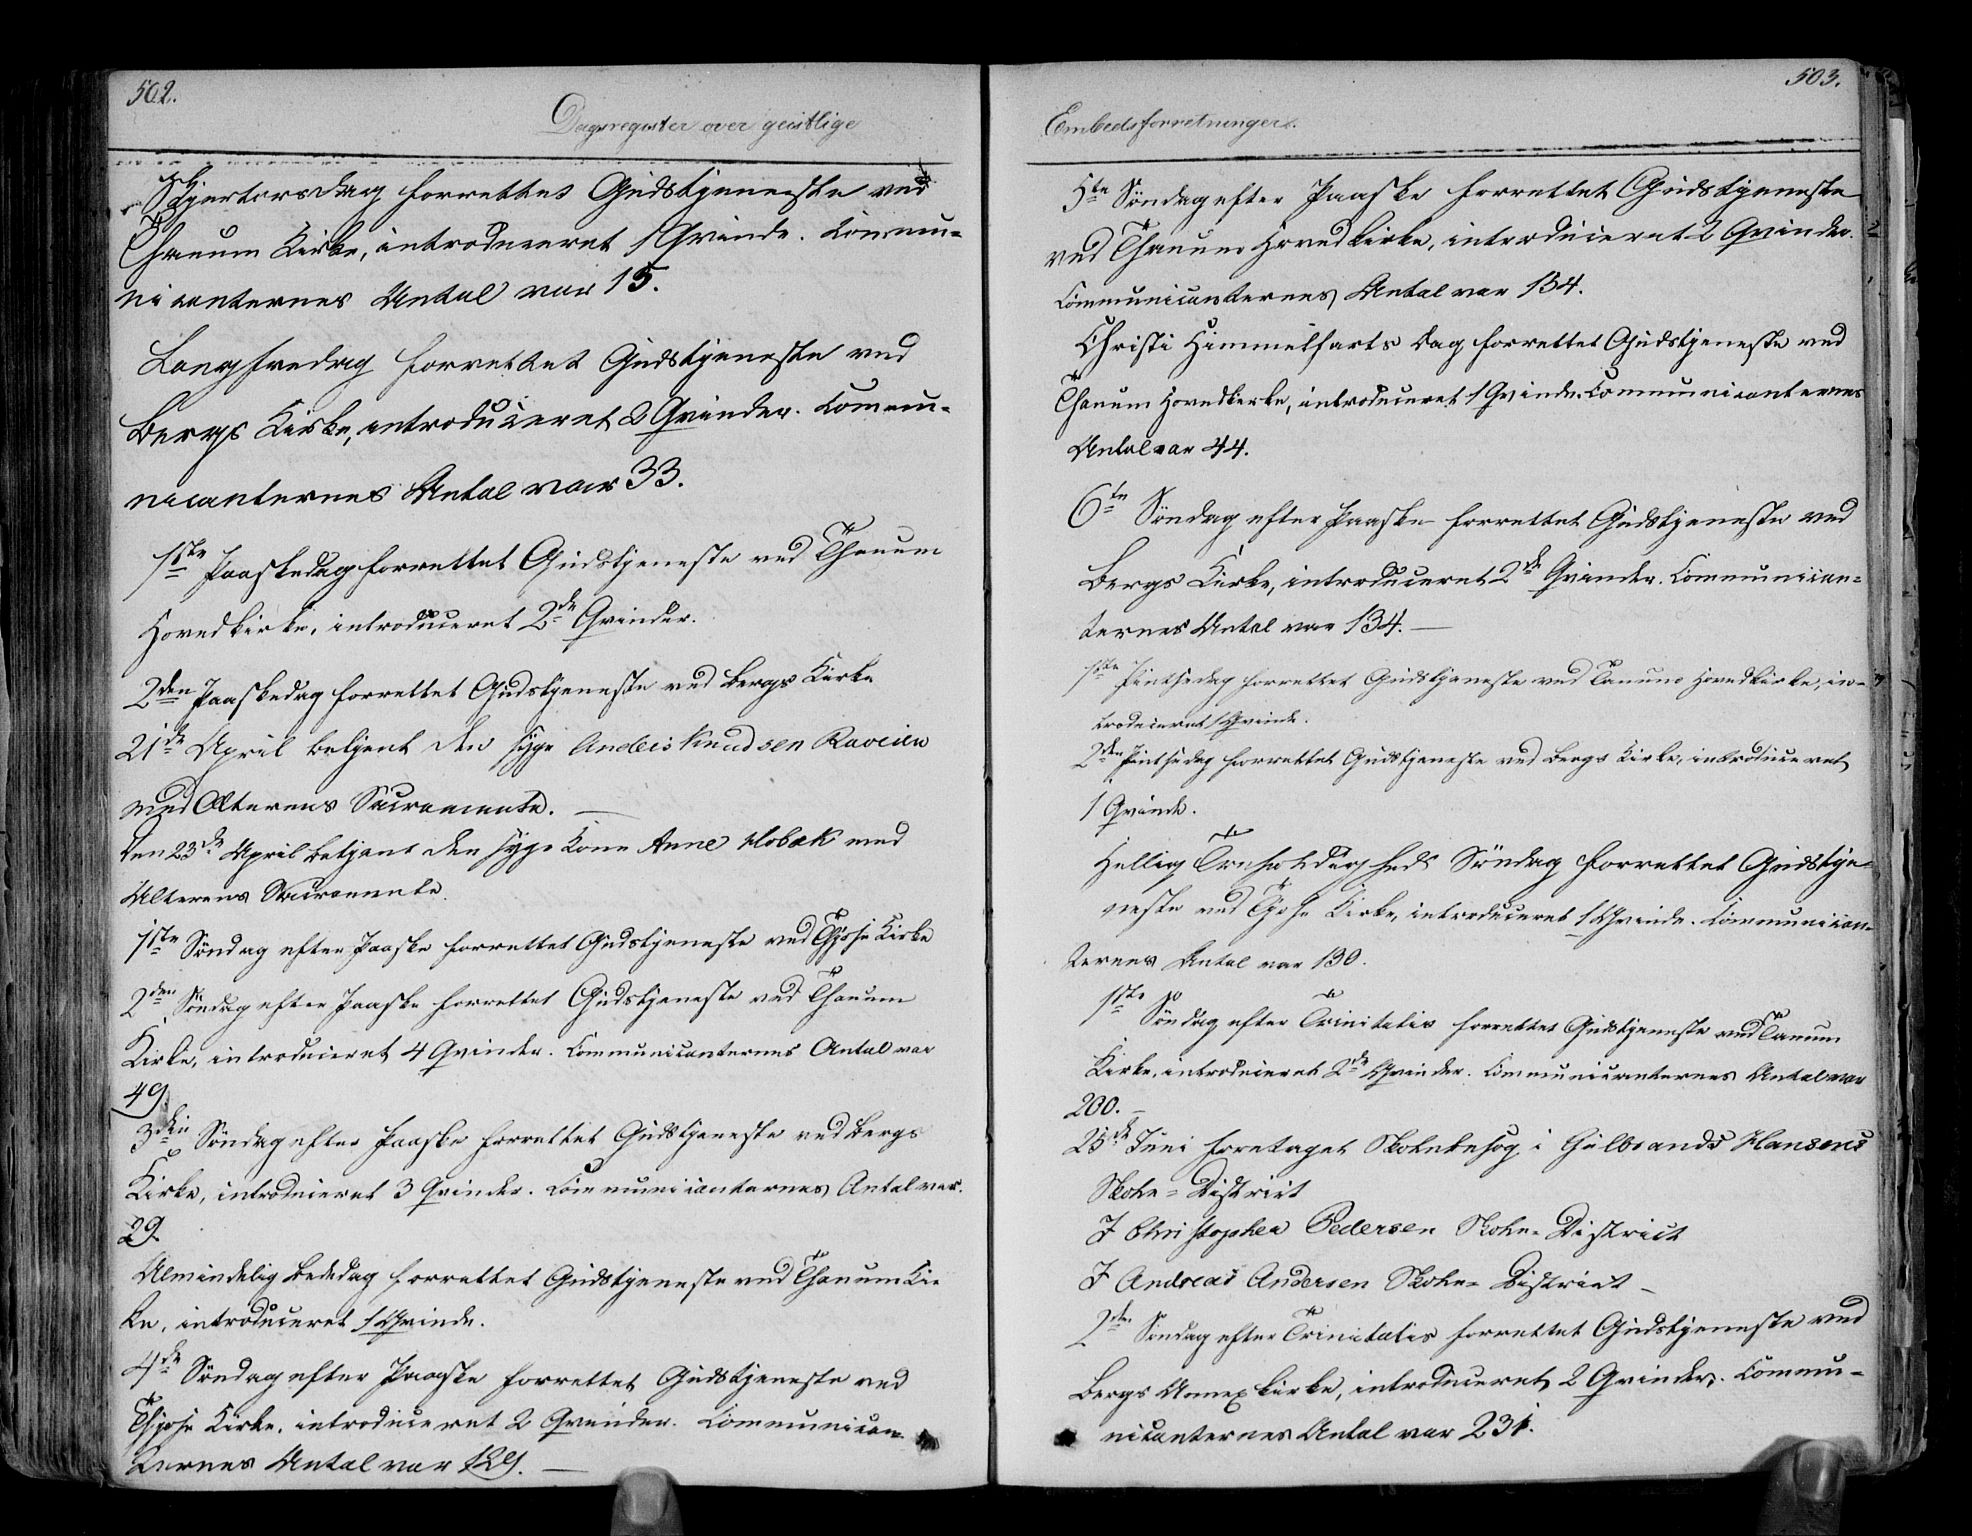 502.
Dagsregister over geistlige
Skjertorsdag forrettet Gudstjeneste ved
Thanum Kirke, introduceeret 1 Qvinde. Commu-
nicanternes Antal var 15.
Langfredag forrettet Gudstjeneste ved
Bergs Kirke, introduceret 2 Qvinder. Commu-
nicanternes Antal var 33.
1ste Paaskedag forrettet Gudstjeneste ved Thanum
Hovedkirke, introduceret 2de Qvinder.
2den Paaskedag forrettet Gudstjeneste ved Bergs Kirke
21de April betjent den syge Anders Knudsen Raveien
med Alterens Sacramente.
Den 23de April betjent den syge Kone Anne Hobæk med
Alterens Sacramente.
1ste Søndag efter Paaske forrettet Gudstjeneste ved Kirke
2den Søndag efter Paaske forrettet Gudstjeneste ved Thanum
Kirke, introduceret 4 Qvinder. Communicanternes Antal var
49.
3die Søndag efter Paaske forrettet Gudstjeneste ved Bergs
Kirke, introduceret 3 Qvinder. Communicanternes Antal var.
29.
Almindelig Bededag forrettet Gudstjeneste ved Thanum Kir
ke, introduceret 1 Qvinde.
4de Søndag efter Paaske forrettet Gudstjeneste ved
Kirke, introduceret 2 Qvinder. Communican-
ternes Antal var
503.
Embedsforretninger.
5te Søndag efter Paaske forrettet Gudstjeneste
ved Thanums Hovedkirke, introduceret 2 Qvinder.
Communicanternes Antal var 134.
Christi Himmelfarts Dag forrettet Gudstjeneste ved
Thanum Hovedkirke, introduceret 1 Qvinde. Communicanternes
Antal var 44.
6te Søndag efter Paaske forrettet Gudstjeneste ved
Bergs Kirke, introduceret 2de Qvinder. Communican-
ternes Antal var 134.
1ste Pintsedag forrettet Gudstjeneste ved Tanums Hovedkirke, in-
troduceret 1 Qvinde.
2den Pintsedag forrettet Gudstjeneste ved Bergs Kirke, introduceret
1 Qvinde.
Hellig Trefoldigheds Søndag forrettet Gudstje-
neste ved Kirke, introduceret 1 Qvinde. Communican-
ternes Antal var 130.
1ste Søndag efter Trinitatis forrettet Gudstjeneste ved Tanum
Kirke, introduceret 2de Qvinder. Communicanternes Antal var
200.
25de Juni foretaget Skolebesøg i Gulbrands Hansens
Skole-District
I Christopher Pedersen Skole-District
I Andreas Andersen Skole-District
2den Søndag efter Trinitatis forrettet Gudstjeneste ved
Bergs Annex Kirke, introduceret 2 Qvinder. Commu-
nicanternes Antal var 231.